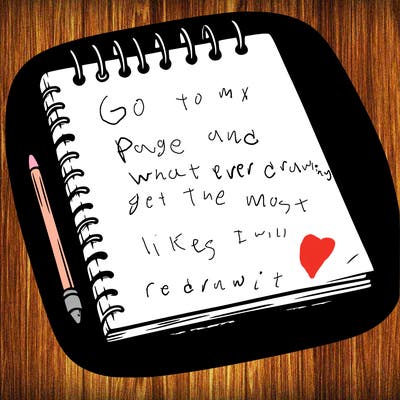 Go to my
Page and
what ever drawing
get the most
likes I will
redrawit